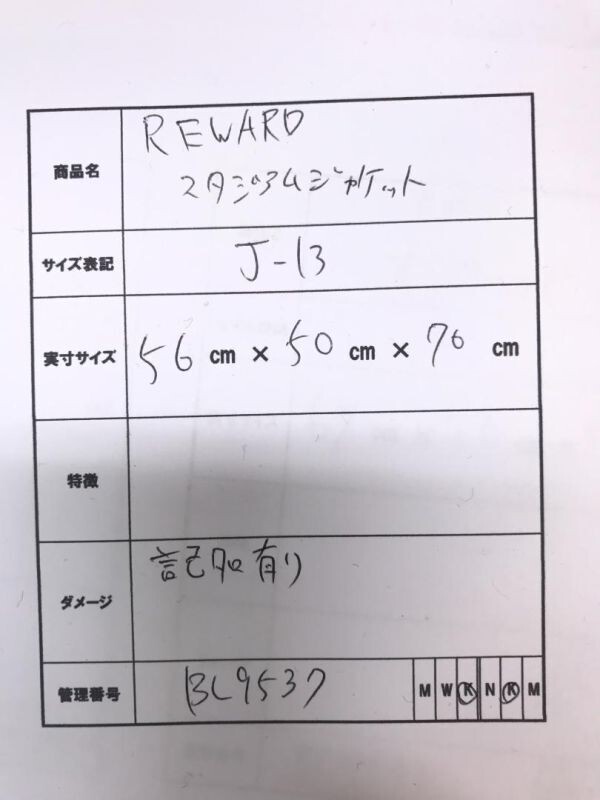 商品名 REWARD
スタジアムジャケット
サイズ表記 J-13
実寸サイズ 56 cm × 50 cm × 70 cm
特徴
ダメージ 記名有り
管理番号 BL9537 M W K N K M